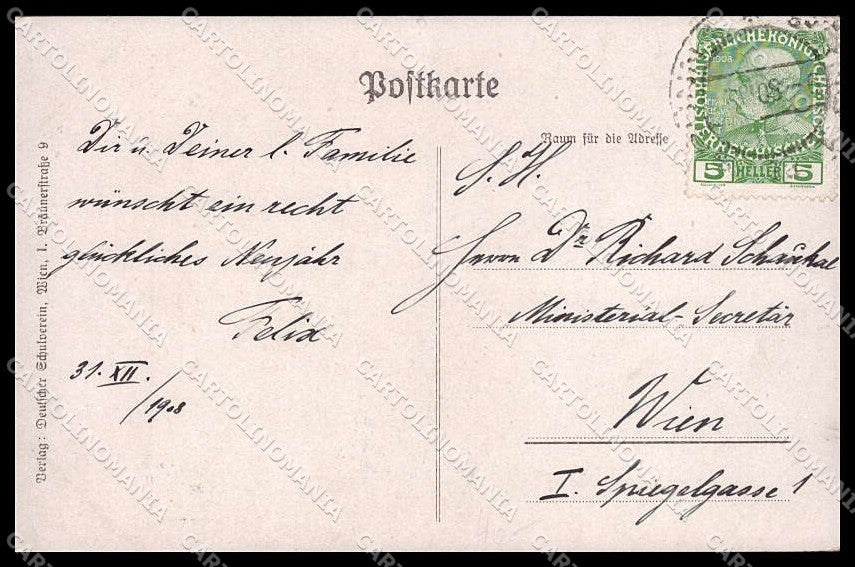 Postkarte
Raum für die Adresse
Dir u. Deiner l. Familie
wünscht ein recht
glückliches Neujahr
Felix
31. XII.
/1908
S. H.
Herrn Dr Richard Schaukal
Ministerial-Secretär
Wien
I. Spiegelgasse 1
5 HELLER 5
1908
Verlag: Deutscher Schulverein, Wien, 1. Bräunerstraße 9
CARTOLINOMANIA